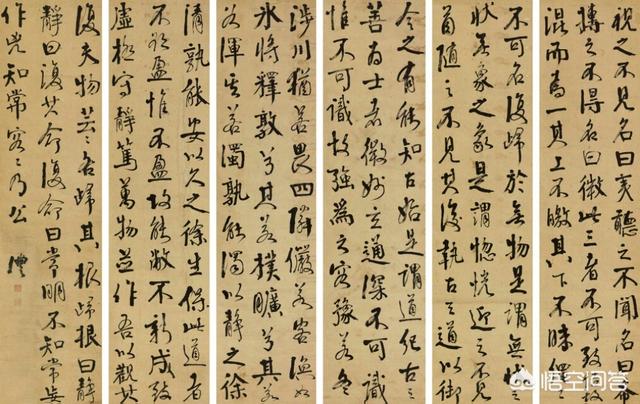 視之不見名曰夷聽之不聞名曰希
搏之不得名曰微此三者不可致故
混而為一其上不皦其下不昧繩
不可名復歸於無物是謂無狀之
狀無象之象是謂惚恍迎之不見
首隨之不見其後執古之道以御
今之有能知古始是謂道紀古之
善為士者微妙玄通深不可識
惟不可識故強為之容豫若冬
涉川猶若畏四鄰儼若客渙如
冰將釋敦兮其若樸曠兮其若
谷渾其若濁孰能濁以靜之徐
清孰能安以久之徐生保此道者
不欲盈惟不盈故能敝不新成致
虛極守靜篤萬物並作吾以觀其
復夫物芸芸各歸其根歸根曰靜
靜曰復其命復命曰常明不知常妄
作凶知常容容乃公
悟空问答